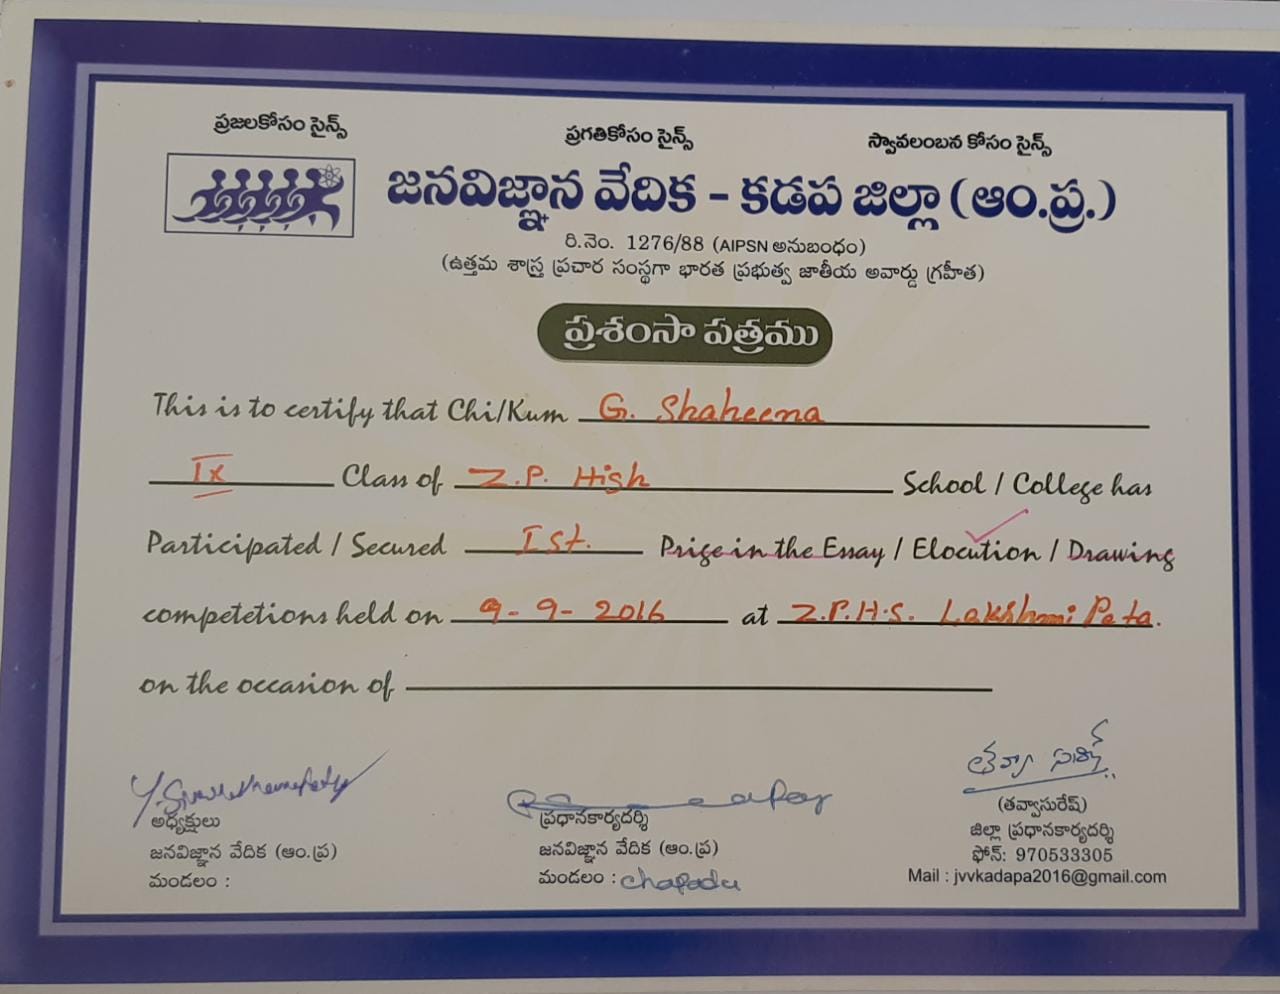 ప్రజలకోసం సైన్స్ ప్రగతికోసం సైన్స్ స్వావలంబన కోసం సైన్స్
జనవిజ్ఞాన వేదిక - కడప జిల్లా (ఆం.ప్ర.)
రి.నెం. 1276/88 (AIPSN అనుబంధం)
(ఉత్తమ శాస్త్ర ప్రచార సంస్థగా భారత ప్రభుత్వ జాతీయ అవార్డు గ్రహీత)
ప్రశంసా పత్రము
This is to certify that Chi/Kum G. Shaheena
IX Class of Z.P. High School / College has
Participated / Secured Ist. Prige in the Essay / Elocution / Drawing
competetions held on 9-9-2016 at Z.P.H.S. Lakshmi Peta.
on the occasion of
తవ్వా సురేష్
అధ్యక్షులు ప్రధానకార్యదర్శి (తవ్వాసురేష్)
జనవిజ్ఞాన వేదిక (ఆం.ప్ర) జనవిజ్ఞాన వేదిక (ఆం.ప్ర) జిల్లా ప్రధానకార్యదర్శి
మండలం : మండలం : chapadu ఫోన్: 970533305
Mail : jvvkadapa2016@gmail.com